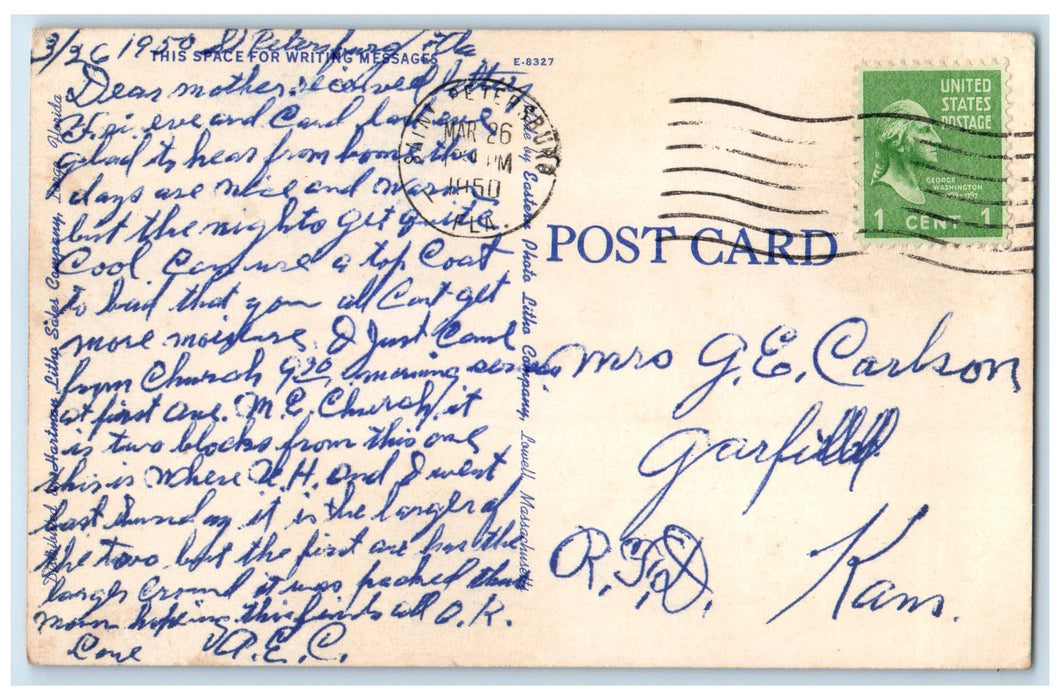 3/26 1950 St Petersburg Fla
THIS SPACE FOR WRITING MESSAGES
E-8327
Dear mother received letter
eve and Card
glad to hear from home the
days are nice and warm
but the nights get quite
Cool Can use a top Coat
to bad that you all Cant get
more moisture. I Just Came
from Church 9 30 morning
at first ave. M.E. Church, it
is two blocks from this one
this is where and I went
last Sunday it is the larger of
the two but the first ave has the
large Crowd it was packed this
morn hoping this finds all O.K.
Love A.E.C.
Distributed by Hartman Litho Sales Company, Largo, Florida
Made by Eastern Photo Litho Company, Lowell Massachusetts
SAINT PETERSBURG
MAR 26
PM
1950
FLA.
UNITED
STATES
POSTAGE
GEORGE
WASHINGTON
1 CENT 1
POST CARD
Mrs G.E. Carlson
Garfield
R.F.D. Kans.